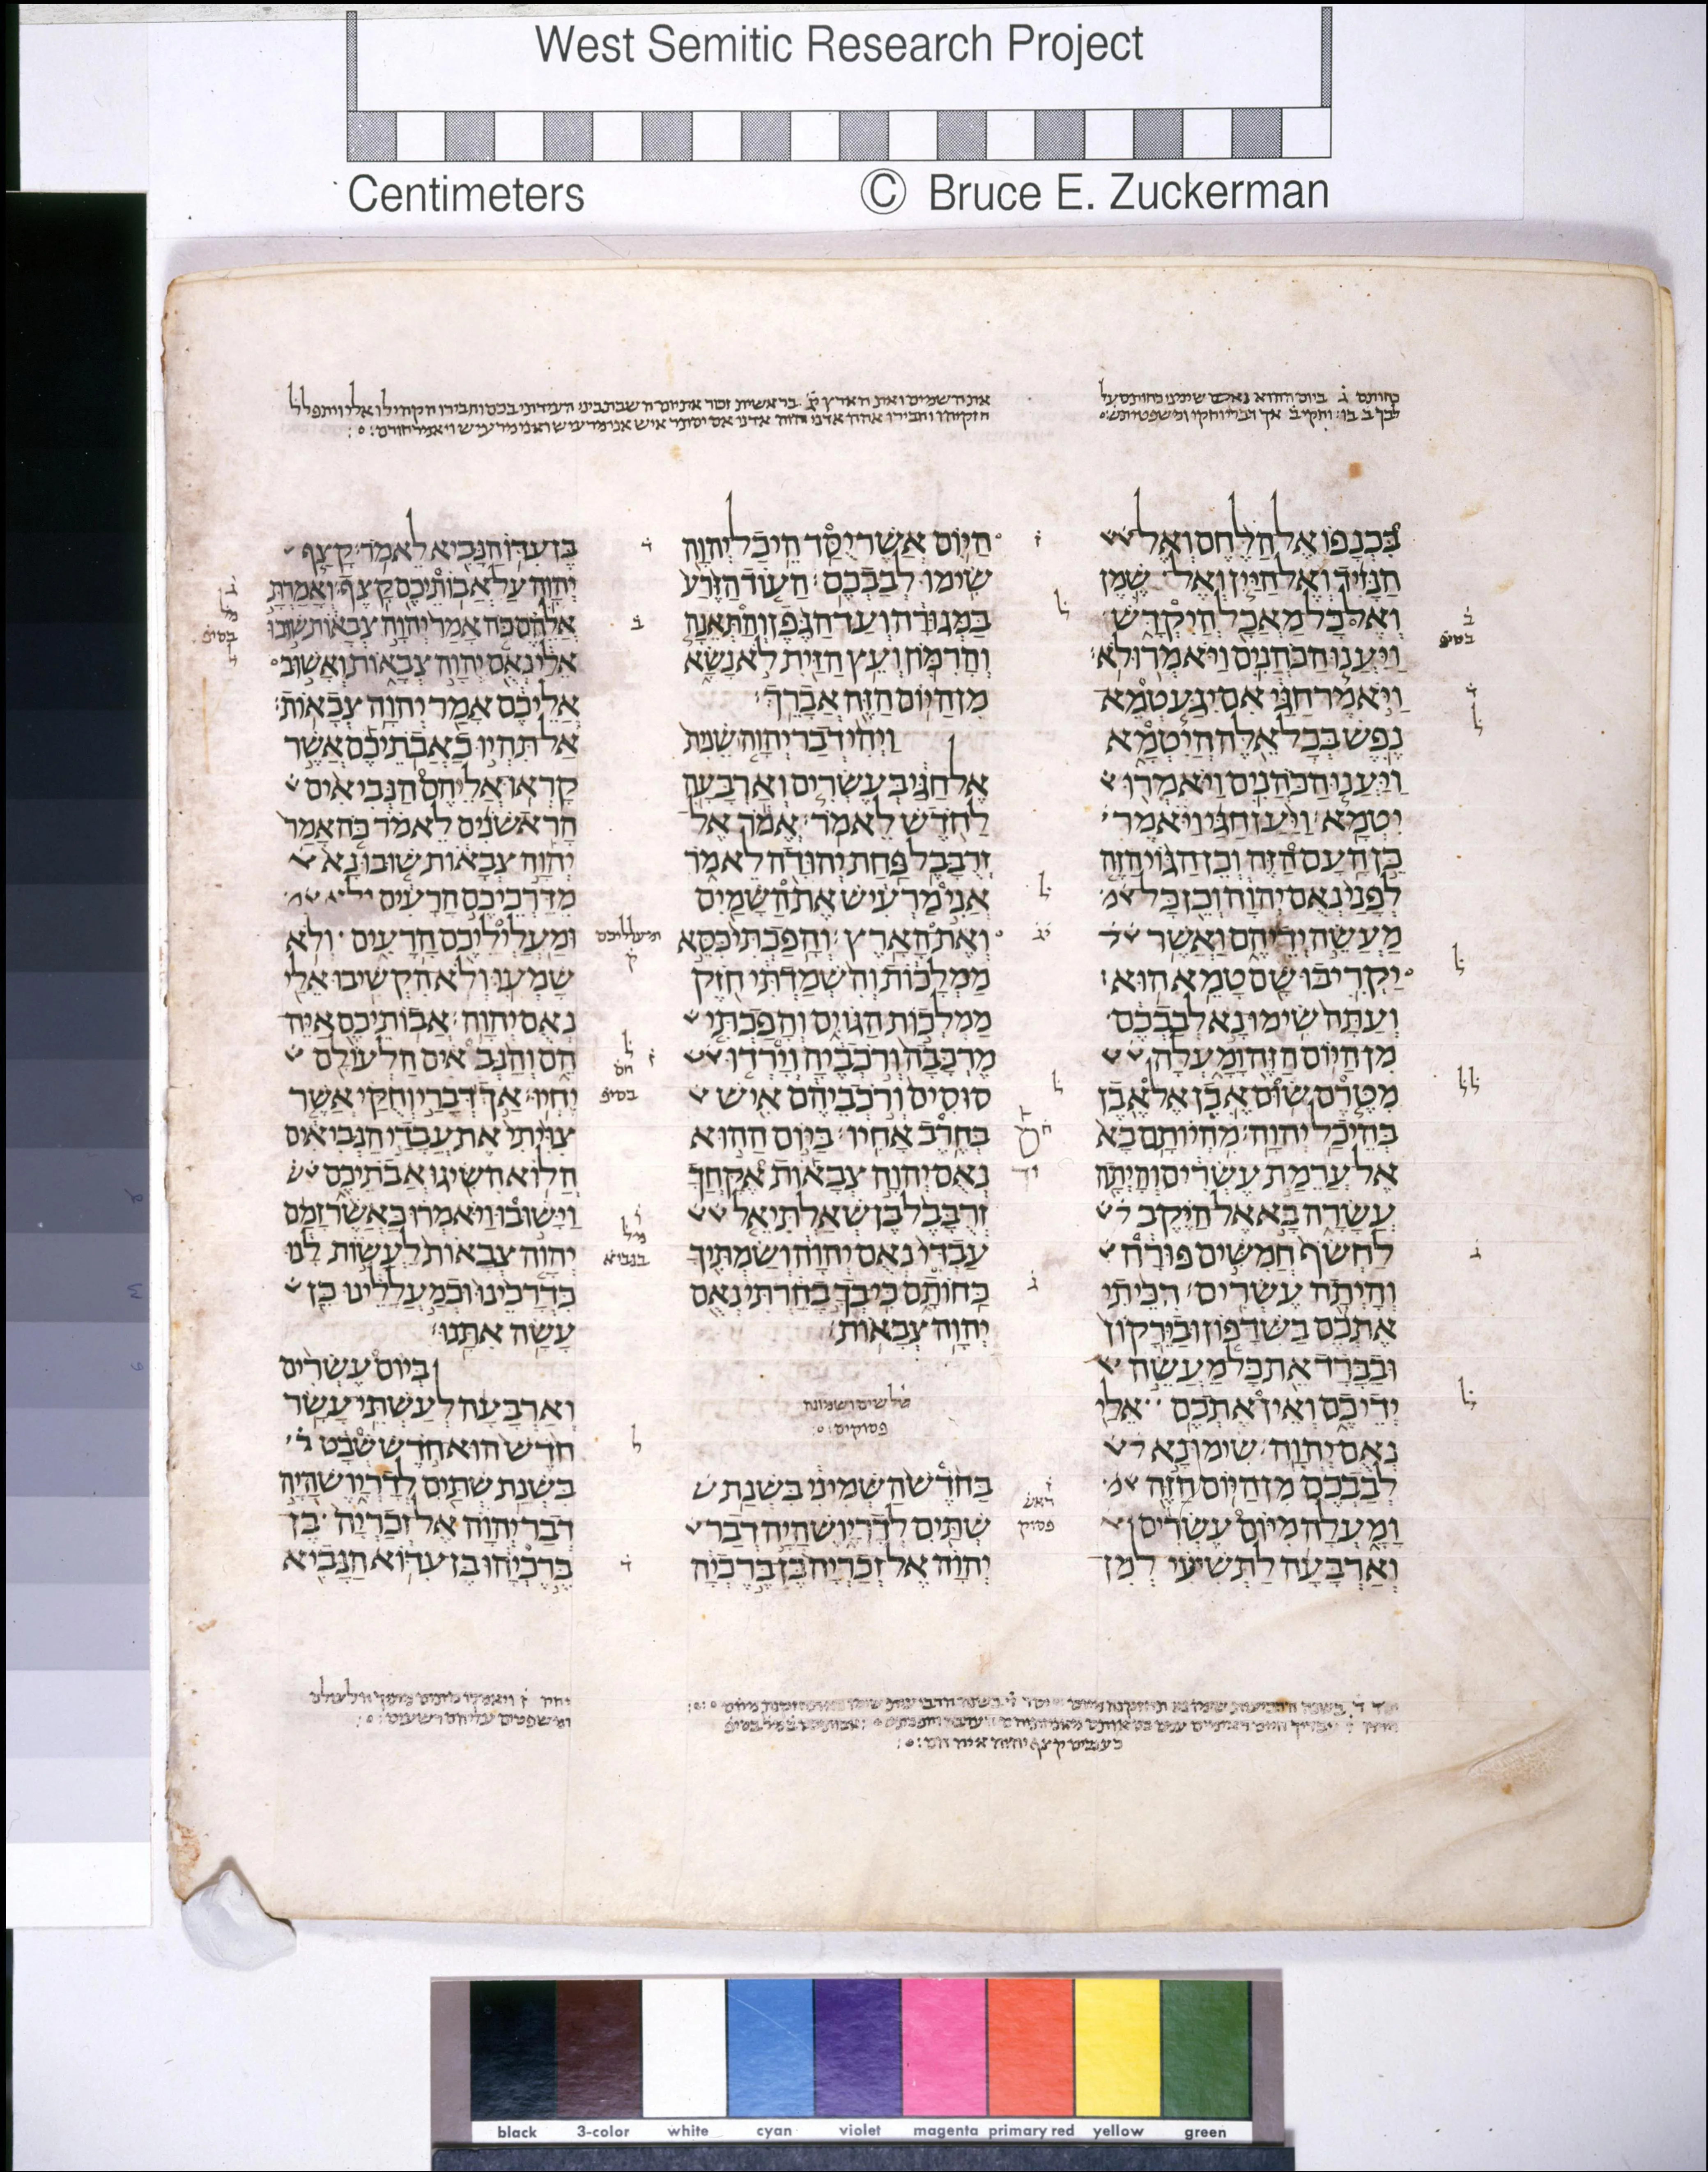 West Semitic Research Project
Centimeters © Bruce E. Zuckerman
בכנפו אל הלחם ואל
הנזיד ואל היין ואל שמן
ואל כל מאכל היקדש
ויענו הכהנים ויאמרו לא׃
ויאמר חגי אם יגע טמא
נפש בכל אלה היטמא
ויענו הכהנים ויאמרו
יטמא׃ ויען חגי ויאמר
כן העם הזה וכן הגוי הזה
לפני נאם יהוה וכן כל
מעשה ידיהם ואשר
יקריבו שם טמא הוא׃
ועתה שימו נא לבבכם
מן היום הזה ומעלה
מטרם שום אבן אל אבן
בהיכל יהוה׃ מהיותם בא
אל ערמת עשרים והיתה
עשרה בא אל היקב
לחשף חמשים פורה
והיתה עשרים׃ הכיתי
אתכם בשדפון ובירקון
ובברד את כל מעשה
ידיכם ואין אתכם אלי
נאם יהוה׃ שימו נא
לבבכם מן היום הזה
ומעלה מיום עשרים
וארבעה לתשיעי למן
היום אשר יסד היכל יהוה
שימו לבבכם׃ העוד הזרע
במגורה ועד הגפן והתאנה
והרמון ועץ הזית לא נשא
מן היום הזה אברך׃
ויהי דבר יהוה שנית
אל חגי בעשרים וארבעה
לחדש לאמר׃ אמר אל
זרבבל פחת יהודה לאמר
אני מרעיש את השמים
ואת הארץ׃ והפכתי כסא
ממלכות והשמדתי חזק
ממלכות הגוים והפכתי
מרכבה ורכביה וירדו
סוסים ורכביהם איש
בחרב אחיו׃ ביום ההוא
נאם יהוה צבאות אקחך
זרבבל בן שאלתיאל
עבדי נאם יהוה ושמתיך
כחותם כי בך בחרתי נאם
יהוה צבאות׃
שלשים ושמונה
פסוקים
בחדש השמיני בשנת
שתים לדריוש היה דבר
יהוה אל זכריה בן ברכיה
בן עדו הנביא לאמר׃ קצף
יהוה על אבותיכם קצף׃ ואמרת
אלהם כה אמר יהוה צבאות שובו
אלי נאם יהוה צבאות ואשוב
אליכם אמר יהוה צבאות׃
אל תהיו כאבתיכם אשר
קראו אליהם הנביאים
הראשנים לאמר כה אמר
יהוה צבאות שובו נא
מדרכיכם הרעים
ומעליליכם הרעים ולא
שמעו ולא הקשיבו אלי
נאם יהוה׃ אבותיכם איה
הם והנבאים הלעולם
יחיו׃ אך דברי וחקי אשר
צויתי את עבדי הנביאים
הלוא השיגו אבתיכם
וישובו ויאמרו כאשר זמם
יהוה צבאות לעשות לנו
כדרכינו וכמעללינו כן
עשה אתנו׃
ביום עשרים
וארבעה לעשתי עשר
חדש הוא חדש שבט
בשנת שתים לדריוש היה
דבר יהוה אל זכריה בן
ברכיהו בן עדוא הנביא
black 3-color white cyan violet magenta primary red yellow green